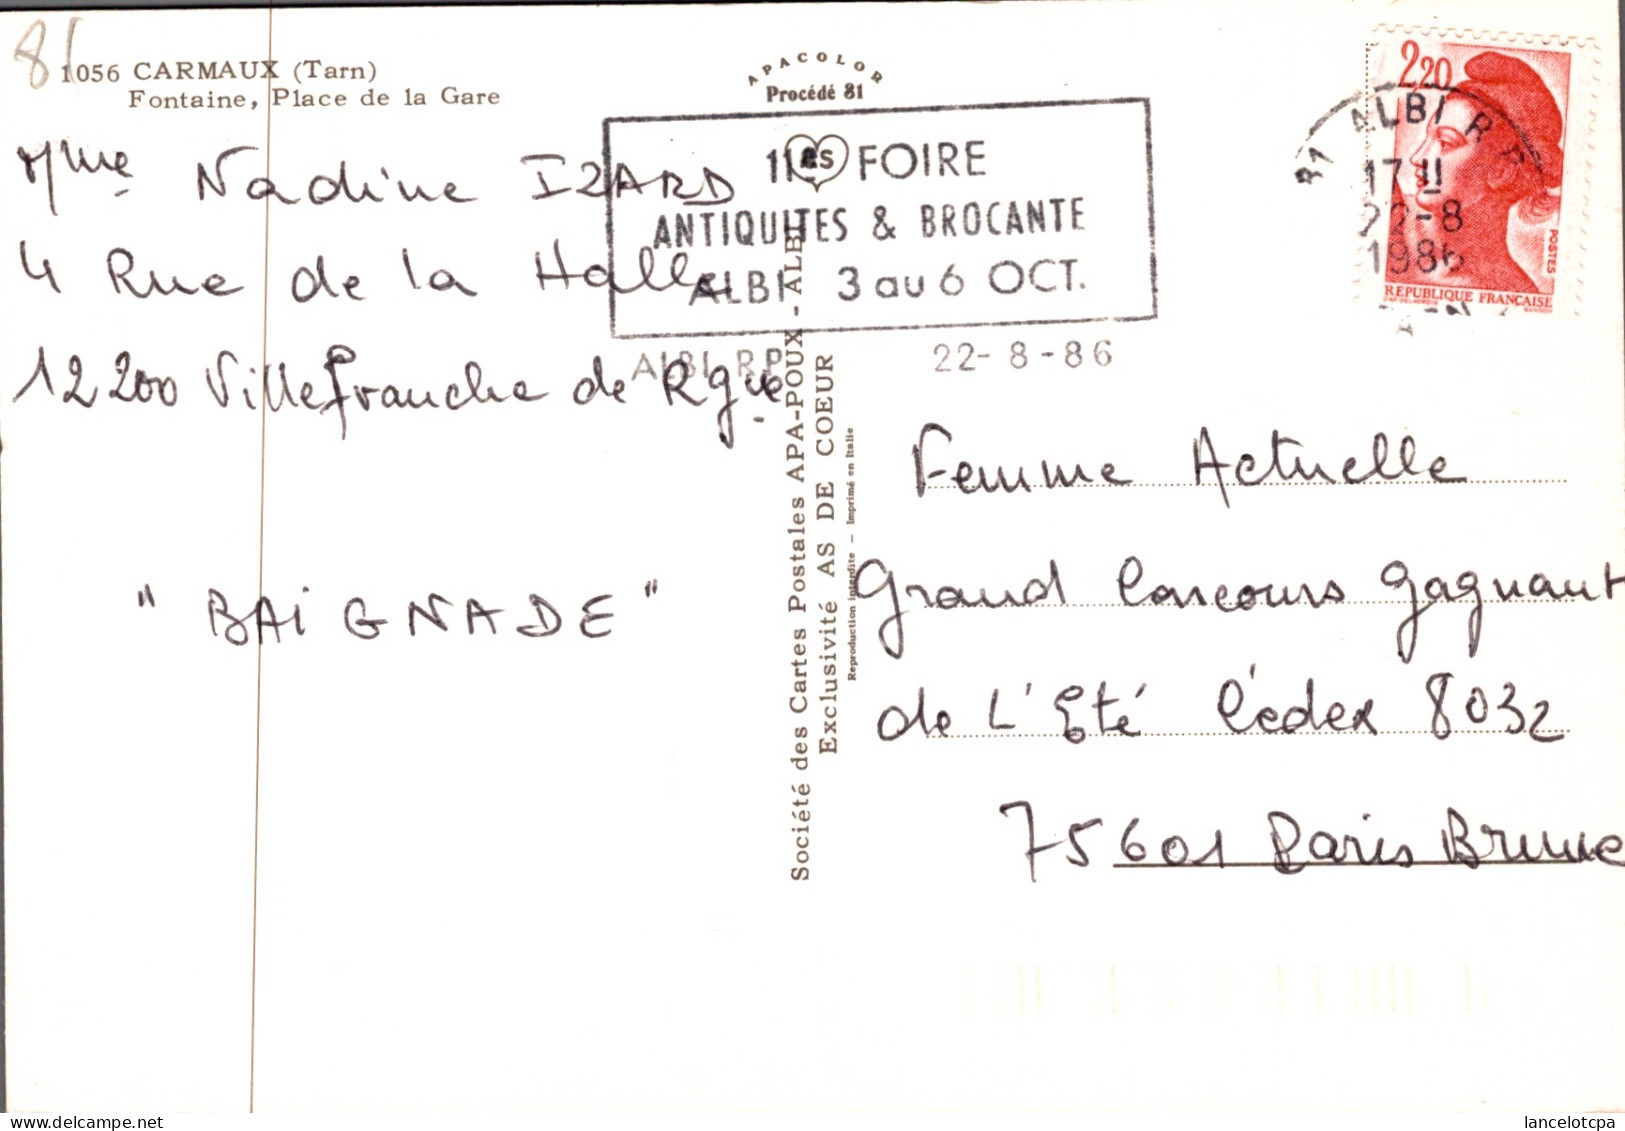 81
1056 CARMAUX (Tarn)
Fontaine, Place de la Gare
APACOLOR
Procédé 81
Mme Nadine IZARD
4 Rue de la Halle
12200 Villefranche de Rgue
" BAiGNADE "
FOIRE
ANTIQUITES & BROCANTE
ALBI 3 au 6 OCT.
ALBI R.P. 22-8-86
2,20
POSTES
REPUBLIQUE FRANÇAISE
81 ALBI R P
17 H
22-8
1986
TARN
Société des Cartes Postales APA-POUX - ALBI
Exclusivité AS DE COEUR
Reproduction interdite — Imprimé en Italie
Femme Actuelle
Grand Concours gagnant
de L'Eté Cédex 8032
75601 Paris Brune
lancelotcpa